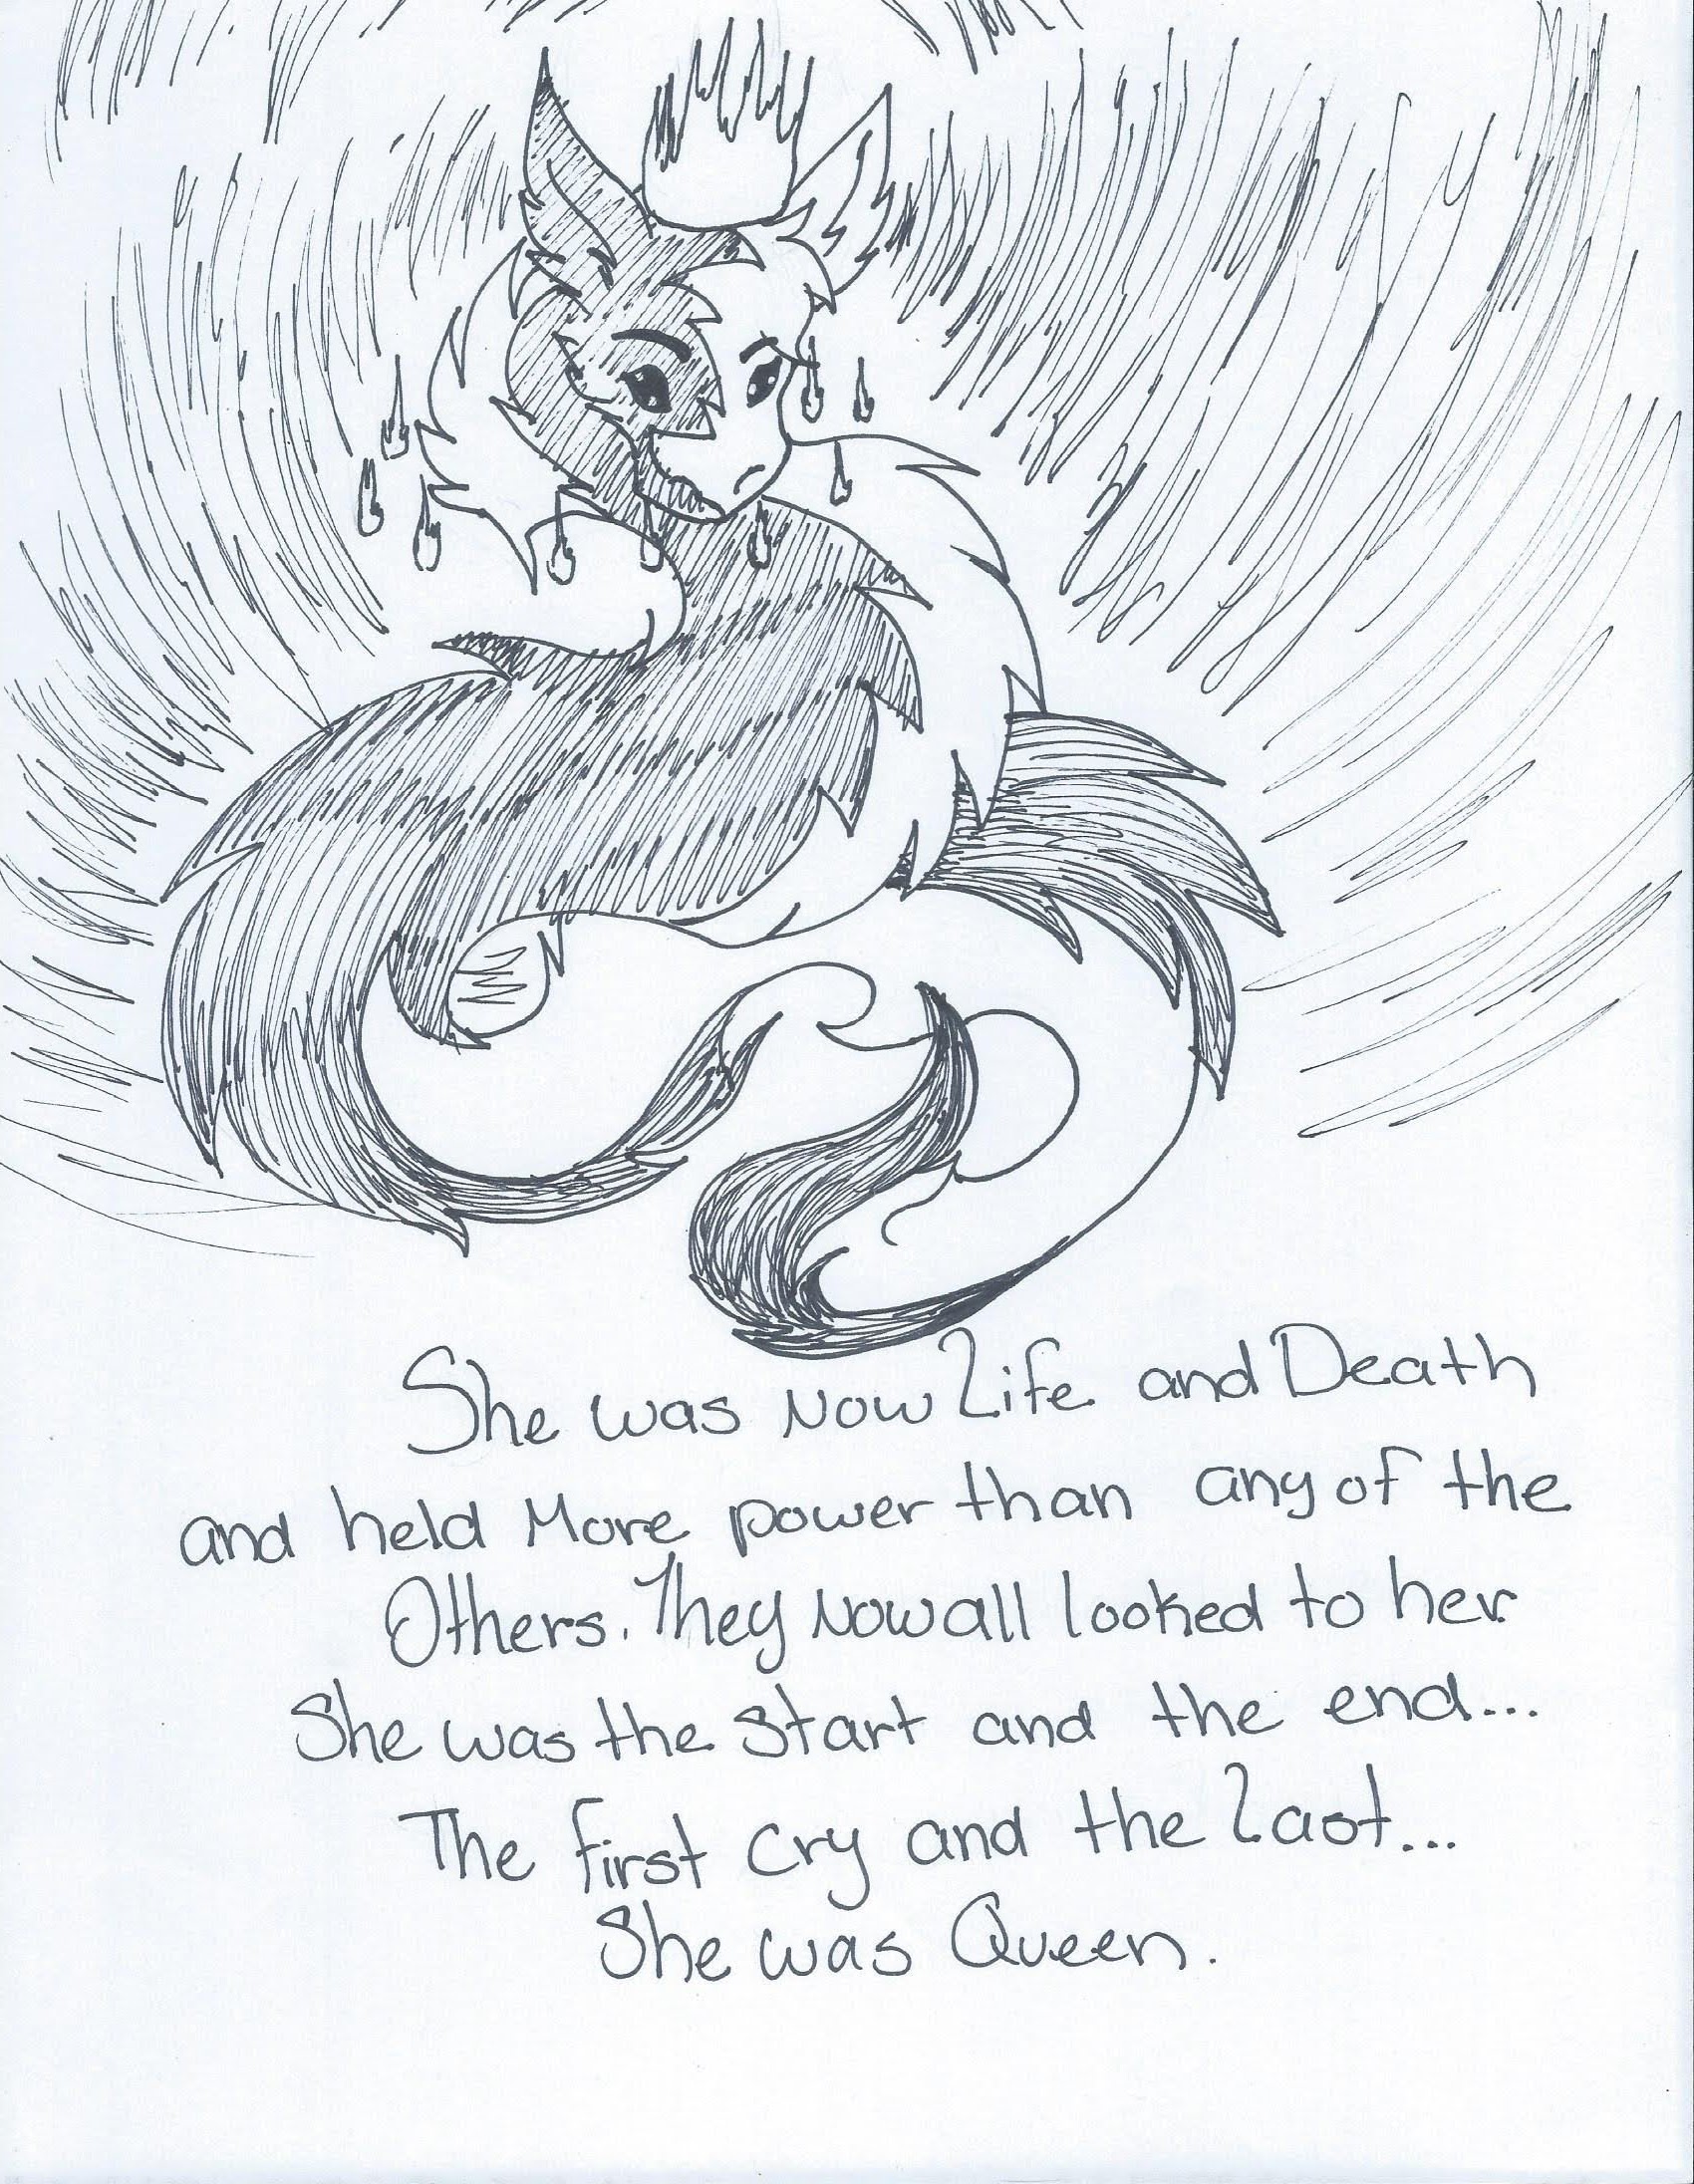 She was Now Life and Death
and held More power than any of the
Others. They Now all looked to her
She was the Start and the end...
The first cry and the Last...
She was Queen.